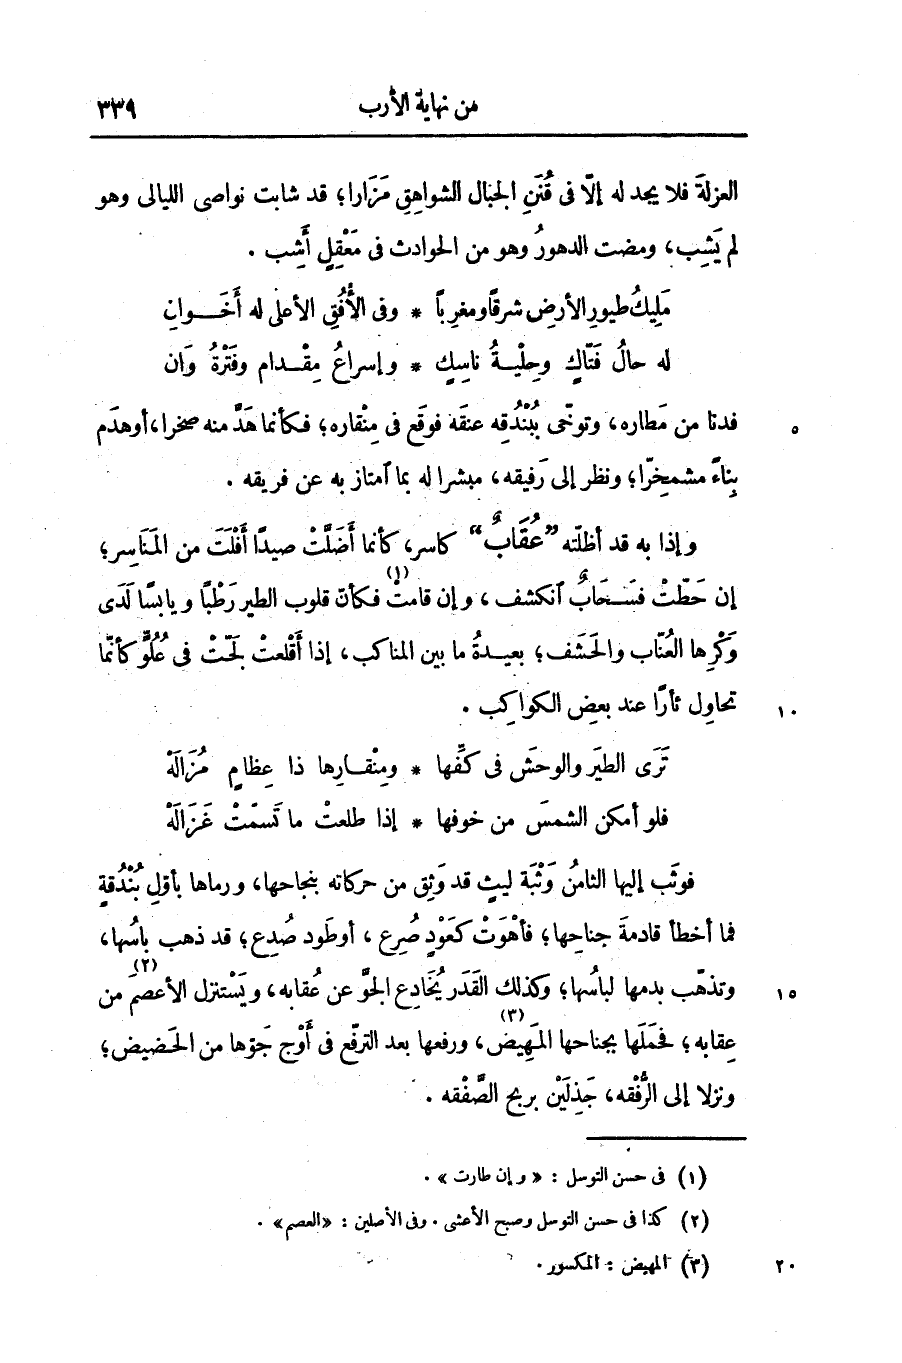 من نهاية الأرب ٣٣٩
العزلةَ فلا يجد له إلّا فى قُنَنِ الجبال الشواهِقِ مَزَارا؛ قد شابت نواصى الليالى وهو
لم يَشِب، ومضت الدهورُ وهو من الحوادث فى مَعْقِلٍ أَشِب .
مَلِيكُ طيورِ الأرضِ شرقًا ومغرِبًا * وفى الأُفُقِ الأعلى له أَخَــوانِ
له حالُ فَتّاكٍ وحِلْيــةُ ناسِكٍ * وإسراعُ مِقْــدام وفَتْرةُ وَان
فدنا من مَطاره، وتوخّى بُبْندُقِه عنقَه فوقَع فى مِنْقاره؛ فكأنما هَدَّ منه صخرا، أو هدَم ٥
بِناءً مشمخِرّا؛ ونظر إلى رَفيقِه، مبشرا له بما آمتاز به عن فريقه .
وإذا به قد أظلّته ”عُقَابٌ“ كاسر، كأنما أضَلَّتْ صيدًا أَفْلَتَ من المَنَاسِر؛
إن حَطّتْ فسَــحَابٌ آنكشف، وإن قامتْ(١) فكأنّ قلوب الطير رَطْبًا ويابسًا لَدَى
وَكْرِها العُنّاب والحَشَف؛ بعيــدةُ ما بين المناكب، إذا أَقْلعتْ لجّتْ فى عُلُوٍّ كأنّما
تحاوِل ثأرًا عند بعضِ الكواكِب . ١٠
تَرَى الطيرَ والوحشَ فى كفِّها * ومِنْقــارِها ذا عِظامٍ مُزَالَهْ
فلو أمكن الشمسَ من خوفها * إذا طلعتْ ما تَسمّتْ غَزَالَهْ
فوثَب إليها الثامنُ وَثْبَة ليثٍ قد وَثِق من حركاته بنجاحها، ورماها بأوّلِ بُنْدُقةٍ
فما أخطأ قادمةَ جناحِها؛ فأَهْوَتْ كعَوْدٍ صُرِع، أوطَود صُدِع؛ قد ذهب باسُها،
وتذهّب بدمها لباسُها؛ وكذلك القَدَر يُخَادِع الجوَّ عن عُقابه، ويَسْتنزل الأعصمَ(٢) من ١٥
عِقابه؛ فحَمَلَها بجناحها المَهِيض(٣)، ورفعها بعد الترفّع فى أَوْج جَوِّها من الحَضيض؛
ونزلا إلى الرُّفْقه، جَذِلَيْن بربح الصَّفْقه .
(١) فى حسن التوسل : «وإن طارت» .
(٢) كذا فى حسن التوسل وصبح الأعشى . وفى الأصلين : «العصم» .
(٣) المهيض : المكسور . ٢٠